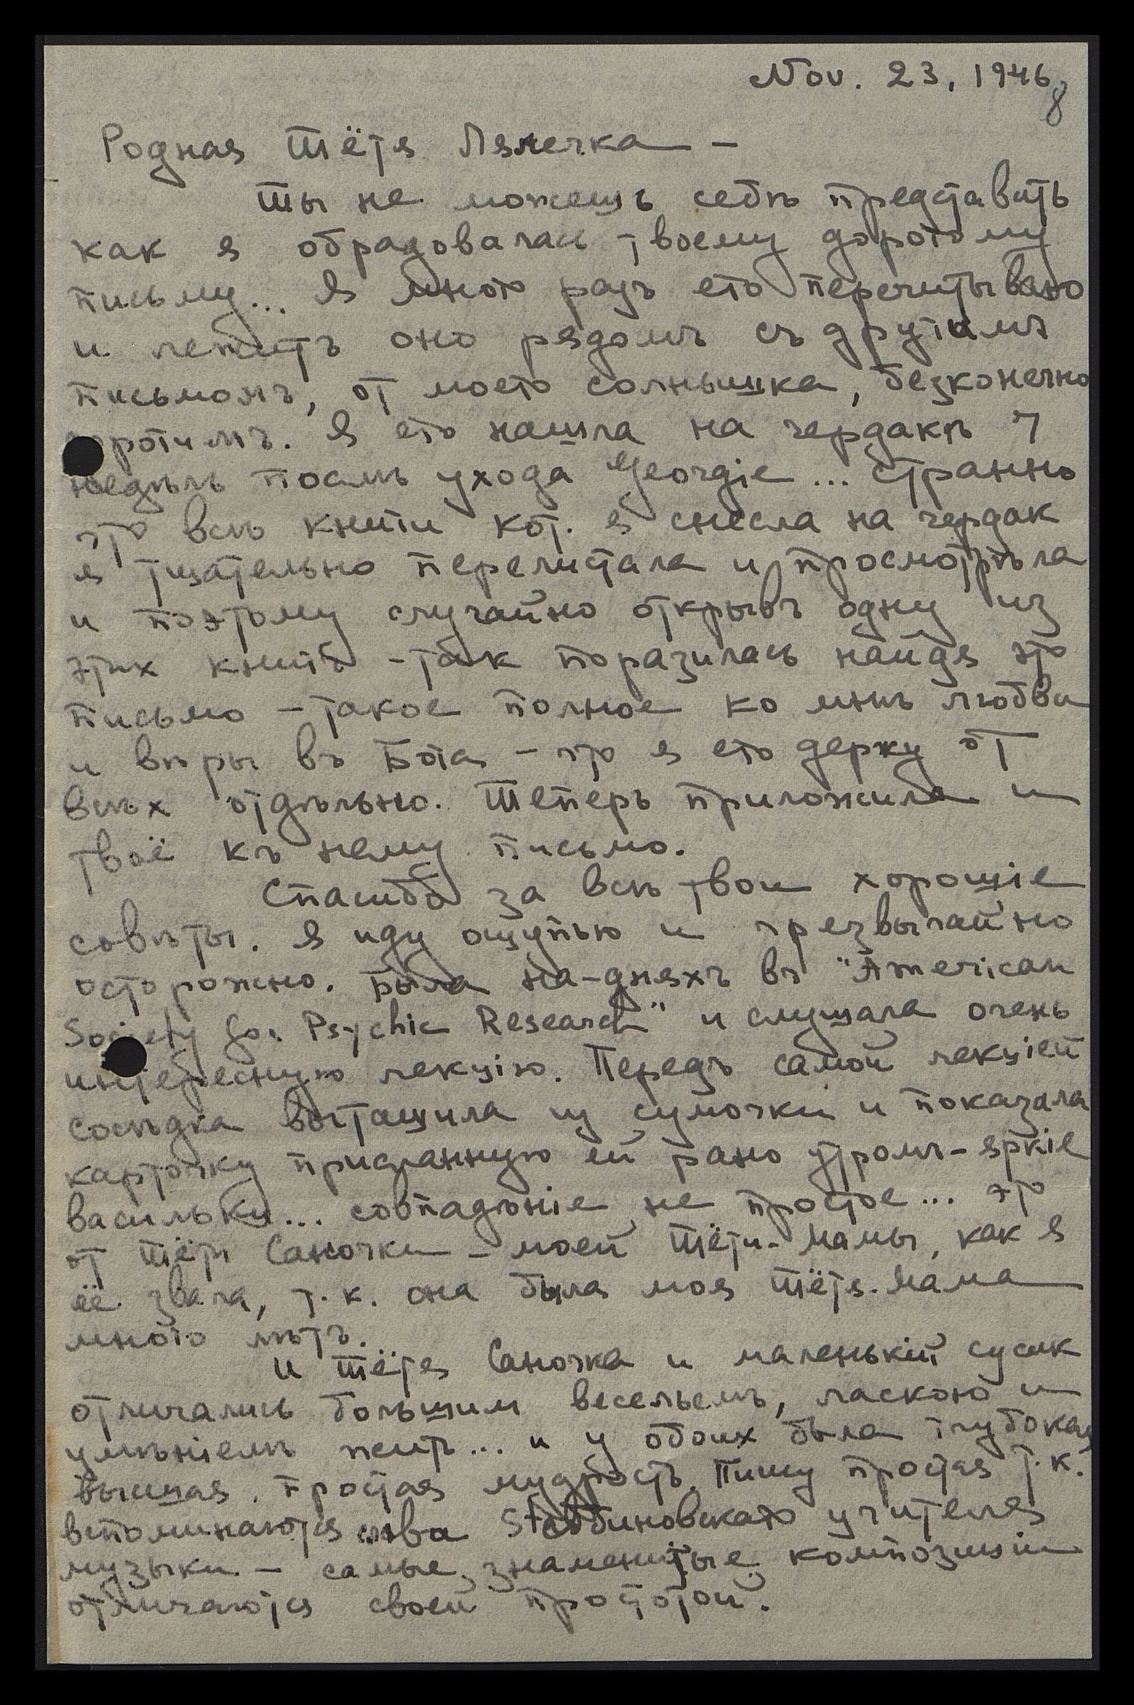 Nov. 23, 1946
8
Родная Тётя Лялечка —
Ты не можешь себѣ представить
как я обрадовалась твоему дорогому
письму... Я много разъ его перечитываю
и лежитъ оно рядомъ съ другимъ
письмомъ, от моего солнышка, безконечно
дорогимъ. Я его нашла на чердакѣ 7
недѣль послѣ ухода Georgie... Странно
что всѣ книги кот. я снесла на чердак
я тщательно перелистала и просмотрѣла
и поэтому случайно открывъ одну из
этих книгъ - так поразилась найдя это
письмо - такое полное ко мнѣ любви
и вѣры въ Бога - что я его держу от
всѣх отдѣльно. Теперь приложила и
твоё къ нему письмо.
Спасибо за всѣ твои хорошіе
совѣты. Я иду ощупью и чрезвычайно
осторожно. Была на-дняхъ въ "American
Society for Psychic Research" и слушала очень
интересную лекцію. Передъ самой лекціей
сосѣдка вытащила из сумочки и показала
карточку присланную ей рано утромъ - яркіе
васильки... совпадѣніе не простое... это
от Тёти Саночки - моей Тёти-Мамы, как я
её звала, т.к. она была моя Тётя-Мама
много лѣтъ.
И Тётя Саночка и маленькій сусик
отличались большим весельемъ, ласкою и
умѣніемъ жить... и у обоих была глубокая
высшая, простая мудрость. Пишу простая т.к.
вспоминаются слова учителя
музыки - самые знаменитые композиціи
отличаются своей простотой.